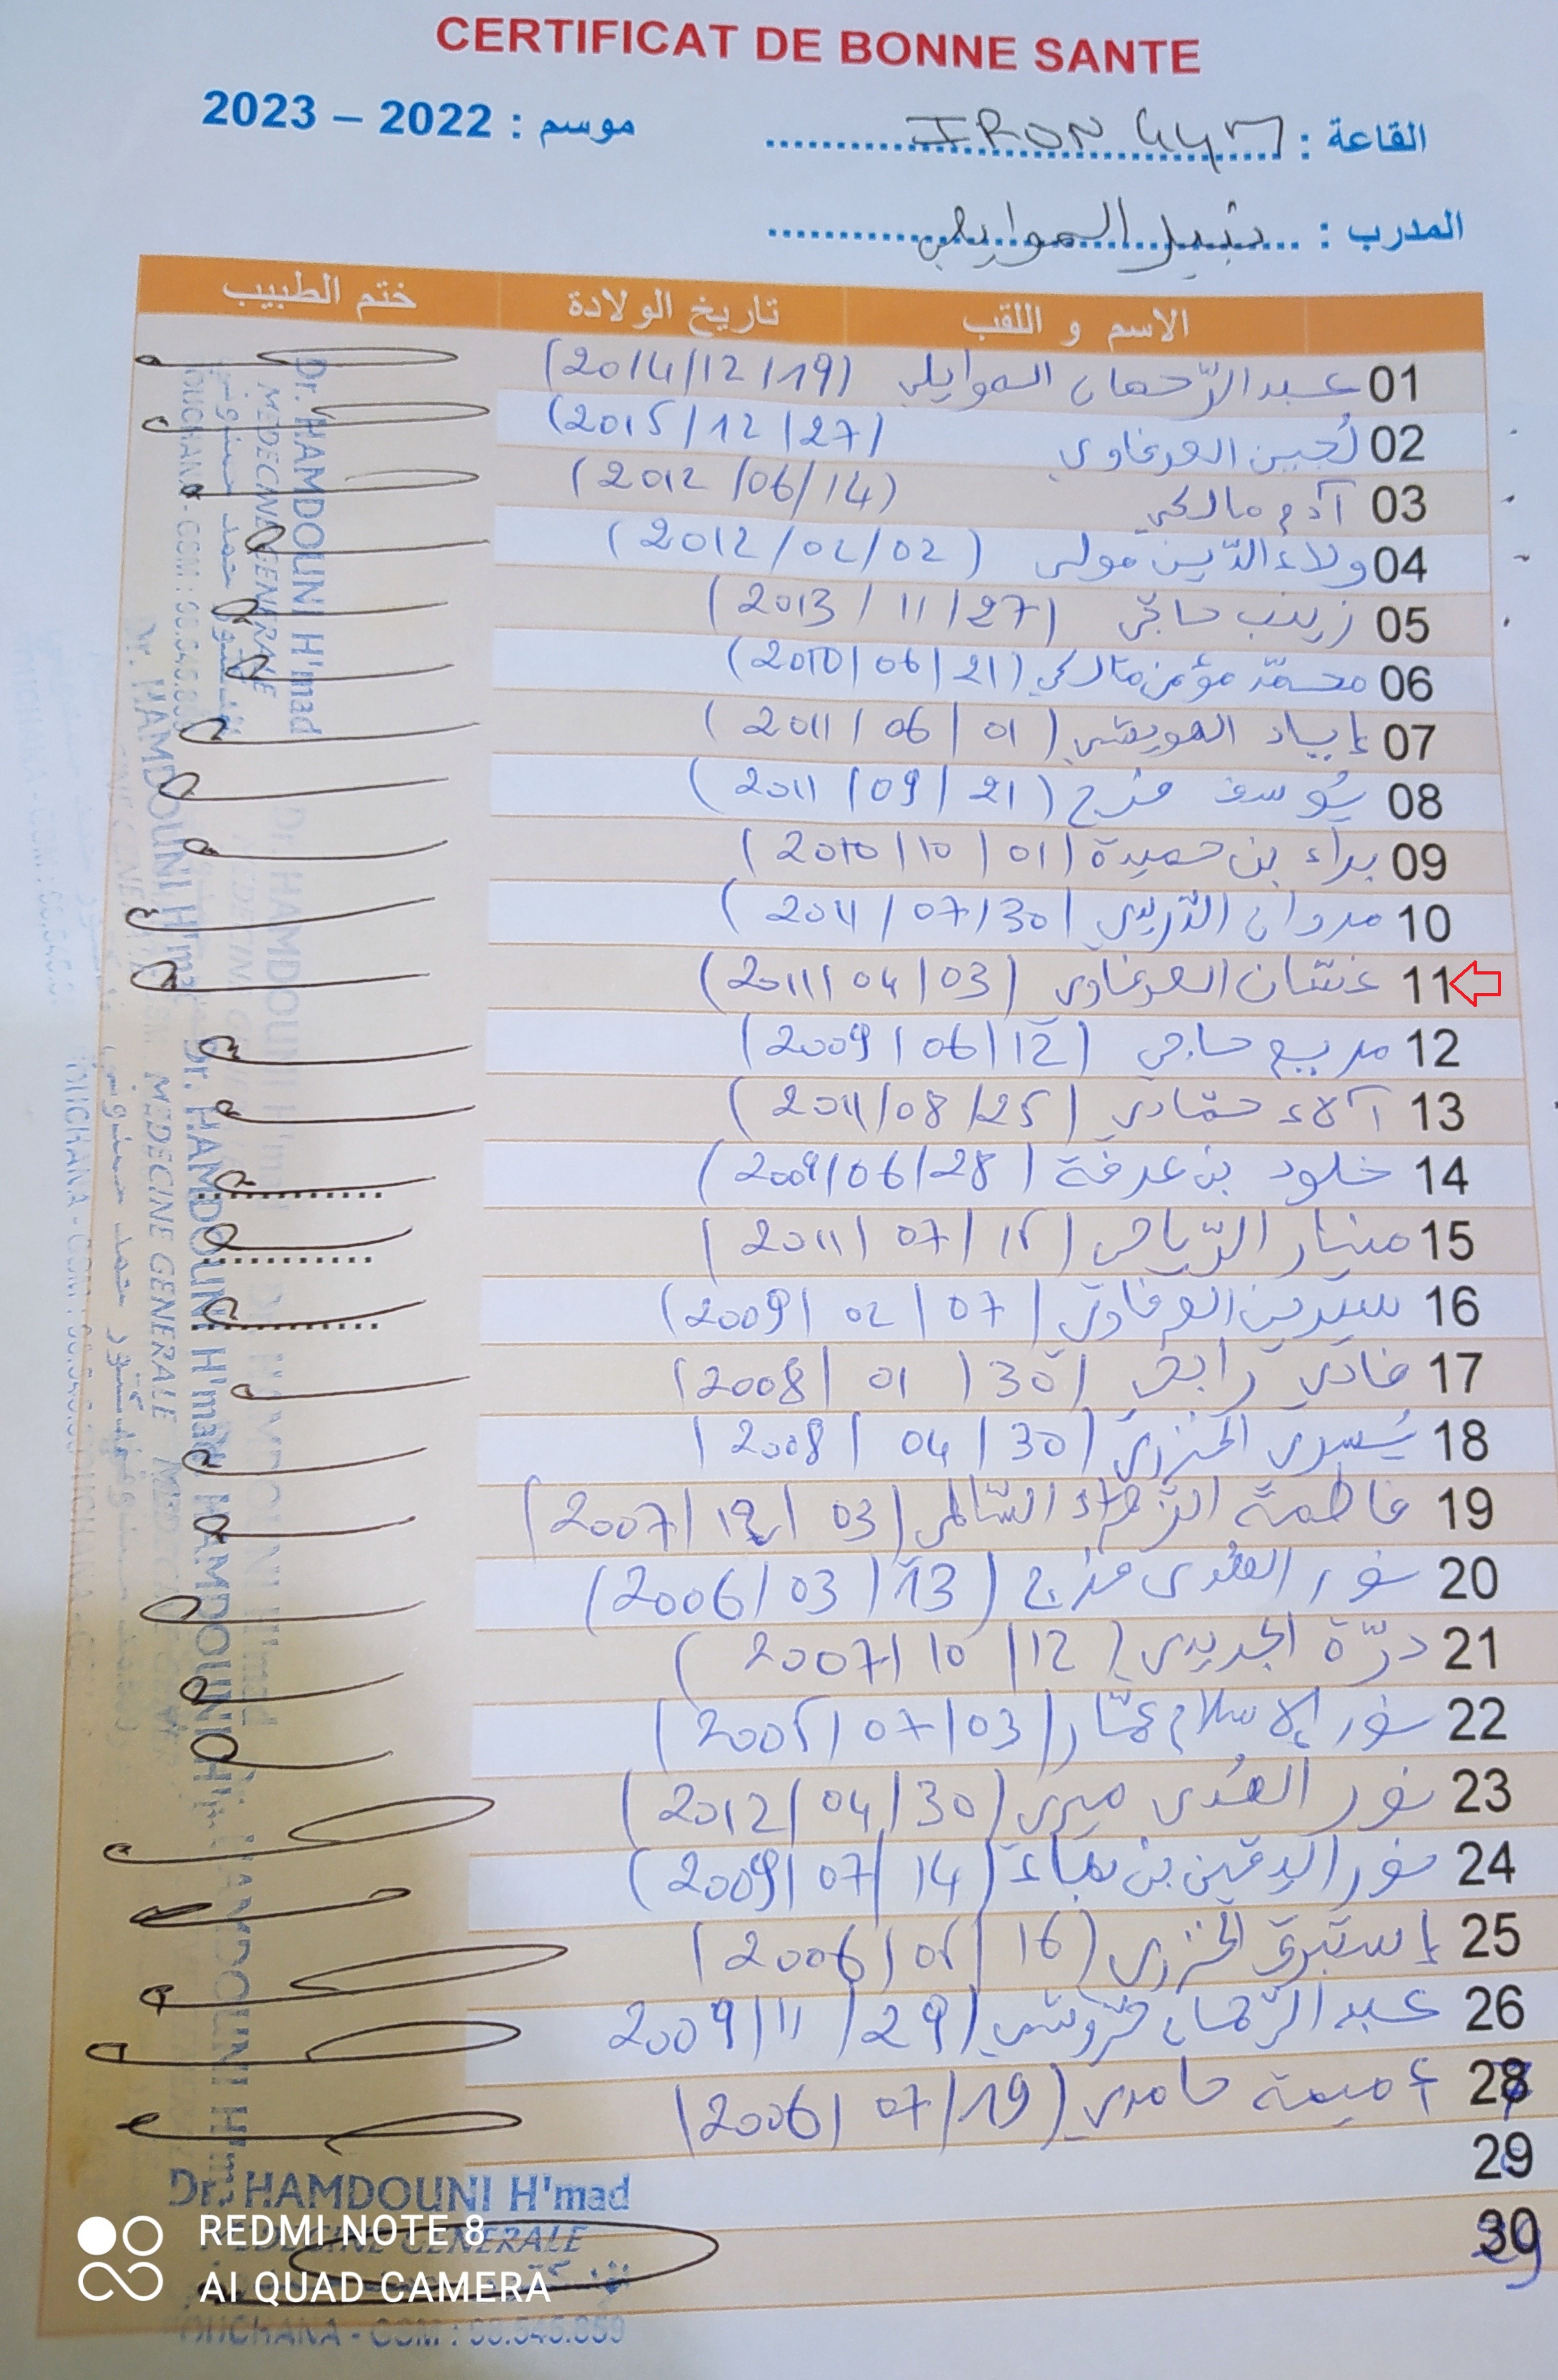 CERTIFICAT DE BONNE SANTE
القاعة : IRON GYM موسم : 2022 – 2023
المدرب : نبيل الموايلي
الاسم و اللقب تاريخ الولادة ختم الطبيب
01 عبد الرّحمان الموايلي (2014/12/19)
02 لُجين العرفاوي (2015/12/27)
03 آدم مالكي (2012/06/14)
04 ولاء الدّين مولى (2012/02/02)
05 زينب حاجّي (2013/11/27)
06 محمّد مؤمن مالكي (2010/06/21)
07 إياد العويشي (2011/06/01)
08 يُوسف فرج (2011/09/21)
09 براء بن حميدة (2010/10/01)
10 مروان الدّريدي (2011/07/30)
11 غسّان العرفاوي (2011/04/03)
12 مريم حاجي (2009/06/12)
13 آلاء حمّادي (2011/08/25)
14 خلود بن عرفة (2009/06/28)
15 منار الرّياحي (2011/07/15)
16 سيرين العرفاوي (2009/02/07)
17 فادي رابحي (2008/01/30)
18 يُسرى الخزري (2008/04/30)
19 فاطمة الزّهراء السّالمي (2007/12/03)
20 نور الهُدى فرج (2006/03/13)
21 درّة الجديدي (2007/10/12)
22 نور الإسلام عمّار (2005/07/03)
23 نور الهُدى ميري (2012/04/30)
24 نور اليقين بن نماء (2009/07/14)
25 إستبرق الخزري (2006/05/16)
26 عبد الرّحمان قروشي (2009/11/29
28 أميمة حامدي (2006/07/19)
29
30
Dr. HAMDOUNI H'mad
MEDECINE GENERALE
BOUCHANA - GSM : 98.545.859
REDMI NOTE 8
AI QUAD CAMERA